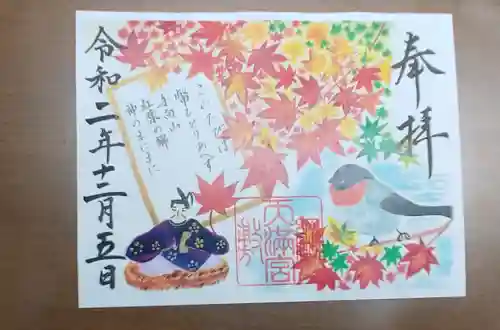 奉拝
このたびは
幣もとりあへず
手向山
紅葉の錦
神のまにまに
天満宮
敷
令和二年十二月五日